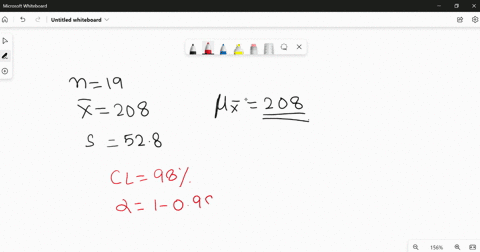 Microsoft Whiteboard
Untitled whiteboard
n=19
x̄ = 208
μx̄ = 208
s = 52.8
CL = 98%
α = 1 - 0.98
156%